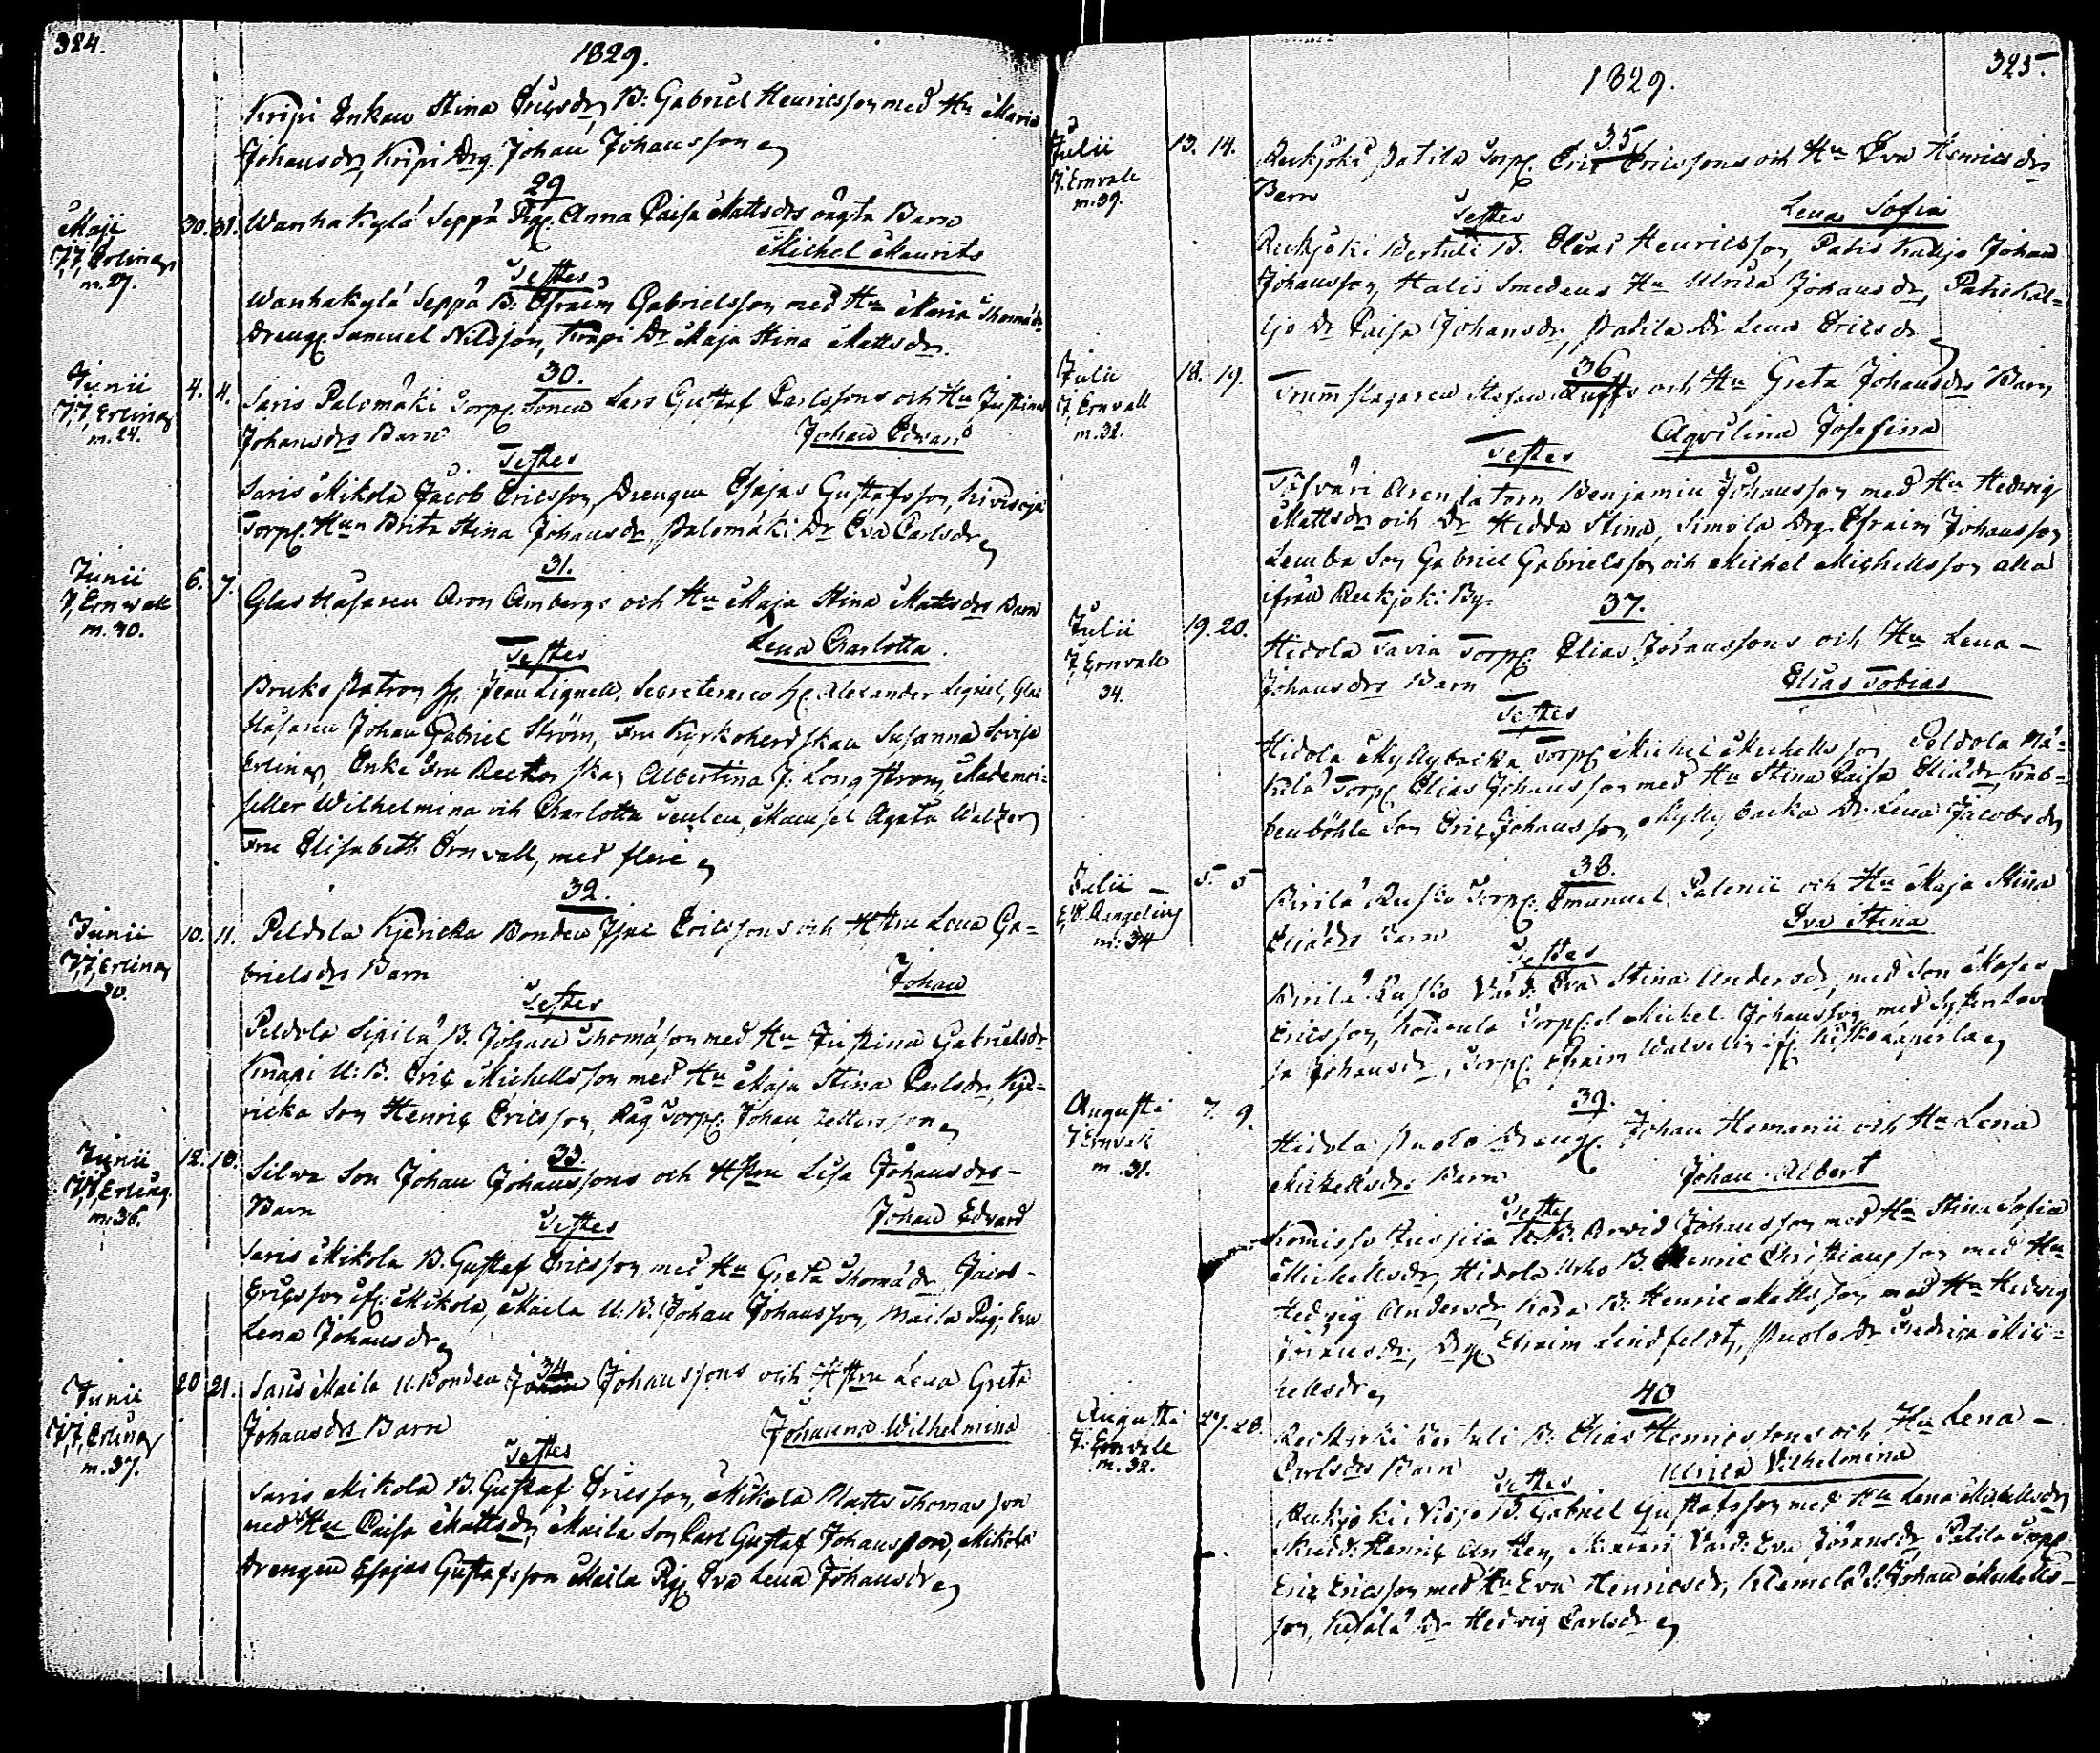 324.
1829.
Kripi Enkan Stina Ericsdr, B: Gabriel Henricsson med Hu Maria
Johansdr, Kripi Drg. Johan Johansson
29
Maji 30. 31. Wanhakylä Seppä Pig. Anna Caisa Mattsdrs oägta Barn
J,J, Erling m. 27.
Michel Maurits
Testes
Wanhakylä Seppä B: Efraim Gabrielsson med Hu Maria Thomædr
Dreng Samuel Nilsson, Knapi Dr Maja Stina Mattsdr.
30.
Junii 4. 4. Saris Palomäki Torp. Sonen Lars Gustaf Carlssons och Hu Justina
J,J, Erling m. 24.
Johansdrs Barn Johan Edvard
Testes
Saris Mikola Jacob Ericsson, Drengen Esajas Gustafsson,
Torp. Hun Brita Stina Johansdr, Palomäki Dr Eva Carlsdr
31.
Junii 6. 7. Glasblåsaren Aron Ambergs och Hu Maja Stina Mattsdrs Barn
J, Ernvall m. 30.
Testes Lena Charlotta.
Bruks Patron H. Jean Lignell, Secreteraren H. Alexander Lignel, Glas
blåsaren Johan Gabriel Ström, Fru Kyrkoherdskan Susanna Lovisa
Erling, Enke Fru Rectorskan Albertina J: Longström, Mademoi-
seller Wilhelmina och Charlotta Jeulen, Mamsel Agata Walzer
Fru Elisabeth Ernvall, med flere
32.
Junii 10. 11. Peldola Kjericka Bonden Isac Ericssons och Hstru Lena Ga-
J,J, Erling
brielsdrs Barn Johan
Testes
Peldola Sipilä B. Johan Thomasson med Hu Justina Gabrielsdr
Knapi U: B. Eric Michelsson med Hu Maja Stina Carlsdr, Kje-
ricka Son Henric Ericsson, Torp: Johan
33.
Junii 12. 13. Silwa Son Johan Johanssons och Hstru Lisa Johansdrs-
J,J, Erling. m. 36.
Barn Johan Edvard
Testes
Saris Mikola B. Gustaf Ericsson med Hu Greta Thomædr Jacob
Ericsson if: Mikola, Maila U: B. Johan Johansson, Maila Pig: Eva
Lena Johansdr
34
Junii 20 21. Saris Maila U. Bonden Johan Johanssons och Hstru Lena Greta
J,J, Erling m. 37.
Johansdrs Barn Johanna Wilhelmina
Testes
Saris Mikola B. Gustaf Ericsson, Mikola Matts Thomasson
med Hu Caisa Mattsdr, Maila Son Carl Gustaf Johansson, Mikola
Drengen Esajas Gustafsson Maila Pig Eva Lena Johansdr
325.
1829.
35
Julii 13. 14. Reckjoki Patila Torp. Eric Ericssons och Hu Eva Henricsdrs
J. Ernvall m. 39.
Barn
Testes Lena Sofia
Reckjoki Bertuli B. Elias Henricsson, Johan
Johansson, Halis Smedens Hu Ulrica Johansdr,
Dr Caisa Johansdr, Patila Dr Lena Ericsdr
36
Julii 18. 19. Trumslagaren Stefan Ruffs och Hu Greta Johansdrs Barn
J, Ernvall m. 32.
Aqvilina Josefina
Testes
Arendatorn Benjamin Johansson med Hu Hedvig
Mattsdr och Dr Hedda Stina, Simola Drg. Efraim Johansson
Son Gabriel Gabrielsson och Michel Michelsson alla
ifrån Reckjoki By.
37.
Julii 19. 20. Hidola Tavia Torp: Elias Johanssons och Hu Lena -
J, Ernvall 34.
Johansdrs Barn Elias Tobias
Testes
Hidola Myllybacka Torp: Michel Michelsson Peldola Mä-
kilä Torp: Elias Johansson med Hu Stina Caisa Eliædr,
Son Eric Johansson, Myllybacka Dr Lena Jacobsdr
38.
Julii - 5. 5 Birilä Rusko Torp: Emanuel och Hu Maja Stina
m. 34
Eliædrs Barn Eva Stina
Testes
Birilä Rusko Värd: Eva Stina Andersdr, med Son Moses
Ericsson, Torp: Michel Johansson med Syster Lovi
sa Johansdr, Torp: Efraim
39.
Augusti 7. 9. Hidola Puolo Dreng: Johan Homanii och Hu Lena
J Ernvall m. 31.
Michelsdrs Barn Johan Albert
Testes
Komisso B. Arvid Johansson med Hu Stina Sofia
Michelsdr, Hidola Uoho B. Henric Christiansson med Hu
Hedvig Andersdr, B. Henric Mattsson med Hu Hedvig
Johansdr, Drg: Efraim Lindfeldt, Puolo Dr Fredrica Mic-
helsdr
40
Augusti 27. 28. Reckjoki Bertuli B. Elias Henricssons och Hu Lena -
J. Ernvall m. 32.
Carlsdrs Barn Ulrica Vilhelmina
Testes
Reckjoki B. Gabriel Gustafsson med Hu Lena Michelsdr
Henric Värd: Eva Johansdr, Patila Torp
Eric Ericsson med Hu Eva Henricsdr, Johan Michels-
son, Dr Hedvig Carlsdr